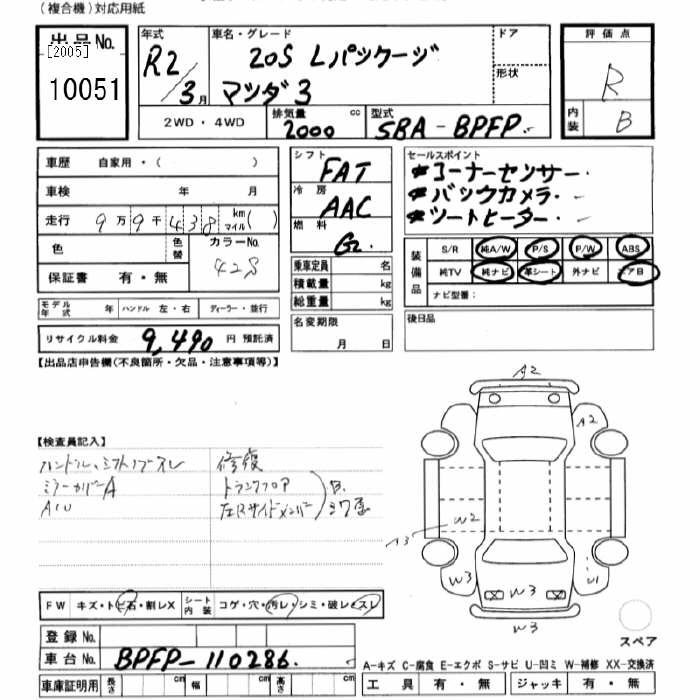 (複合機)対応用紙
出品No.
[2005]
10051
年式 R2/3月
車名・グレード 20S Lパッケージ
マツダ3
ドア
形状
評価点 R
内装 B
2WD・4WD
排気量 2000 cc
型式 5BA-BPFP
車歴 自家用・( )
車検 年 月
走行 9万9千438 km マイル( )
色 色替 カラーNo. 42S
保証書 有・無
シフト FAT
冷房 AAC
燃料 G
乗車定員 名
積載量 kg
総重量 kg
セールスポイント
*コーナーセンサー
*バックカメラ
*シートヒーター
装備品 S/R 純A/W P/S P/W ABS
純TV 純ナビ 革シート 外ナビ エアB
ナビ型番:
モデル年式 年 ハンドル 左・右 ディーラー・並行
リサイクル料金 9,490 円 預託済
名変期限 月 日
後日品
【出品店申告欄(不良箇所・欠品・注意事項等)】
【検査員記入】
ハンドル、シフトノブスレ
ミラーカバーA
修復
トランクフロア
左Rサイドメンバー
A2
A2
W2
A3
W3
W3
U1
W3
FW キズ・トビ石・割レX シート内装 コゲ・穴・汚レ・シミ・破レ・スレ
スペア
登録No.
車台No. BPFP-110286
A-キズ C-腐食 E-エクボ S-サビ U-凹ミ W-補修 XX-交換済
車庫証明用 長さ cm 幅 cm 高さ cm
工具 有・無 ジャッキ 有・無